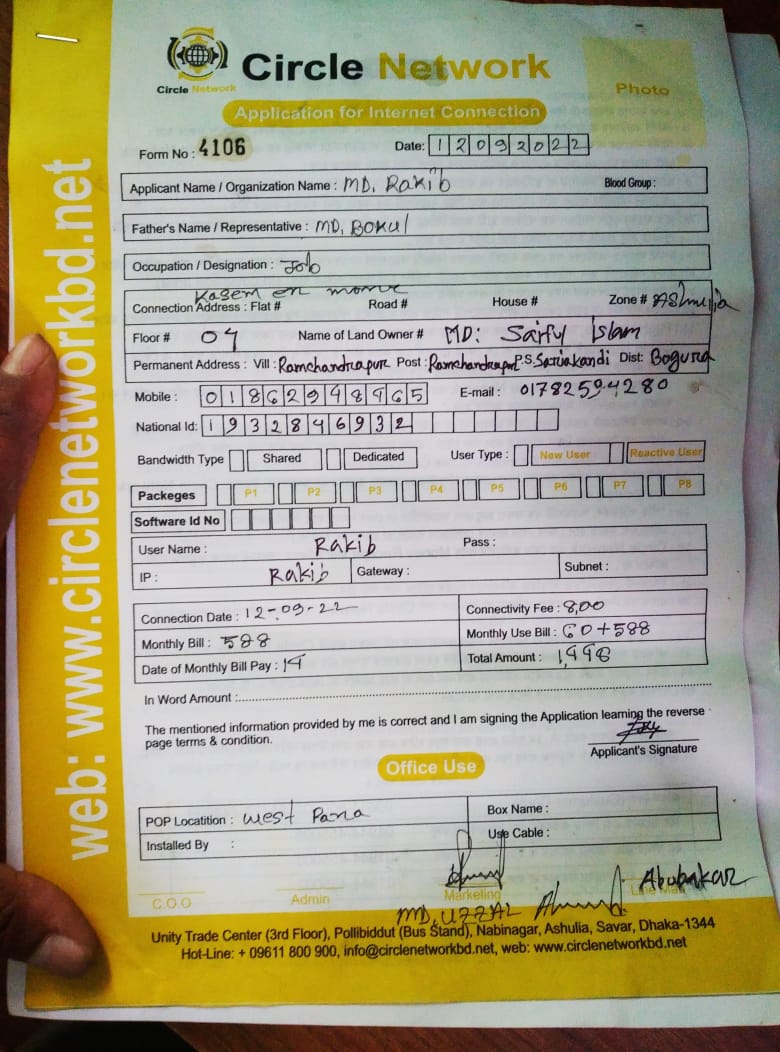 web: www.circlenetworkbd.net
Circle Network
Circle Network
Photo
Application for Internet Connection
Form No : 4106 Date: 12092022
Applicant Name / Organization Name : MD, Rakib Blood Group :
Father's Name / Representative : MD, BOKUl
Occupation / Designation : Job
Kasem
Connection Address : Flat # Road # House # Zone # AShulia
Floor # 04 Name of Land Owner # MD: Saiful Islam
Permanent Address : Vill : Ramchandrapur Post : Ramchandrapur P.S. Sariakandi Dist: Bogura
Mobile : E-mail :
National Id: 1932846932
Bandwidth Type Shared Dedicated User Type : New User Reactive User
Packeges P1 P2 P3 P4 P5 P6 P7 P8
Software Id No
User Name : Rakib Pass :
IP : Rakib Gateway : Subnet :
Connection Date : 12-09-22 Connectivity Fee : 8,00
Monthly Bill : 588 Monthly Use Bill : 60+588
Date of Monthly Bill Pay : Total Amount :
In Word Amount :
The mentioned information provided by me is correct and I am signing the Application learning the reverse
page terms & condition.
Applicant's Signature
Office Use
POP Locatition : West Para Box Name :
Installed By : Use Cable :
C.O.O Admin Marketing Line Man Abubakar
MD, UZZAL
Unity Trade Center (3rd Floor), Pollibiddut (Bus Stand), Nabinagar, Ashulia, Savar, Dhaka-1344
Hot-Line: + 09611 800 900, info@circlenetworkbd.net, web: www.circlenetworkbd.net